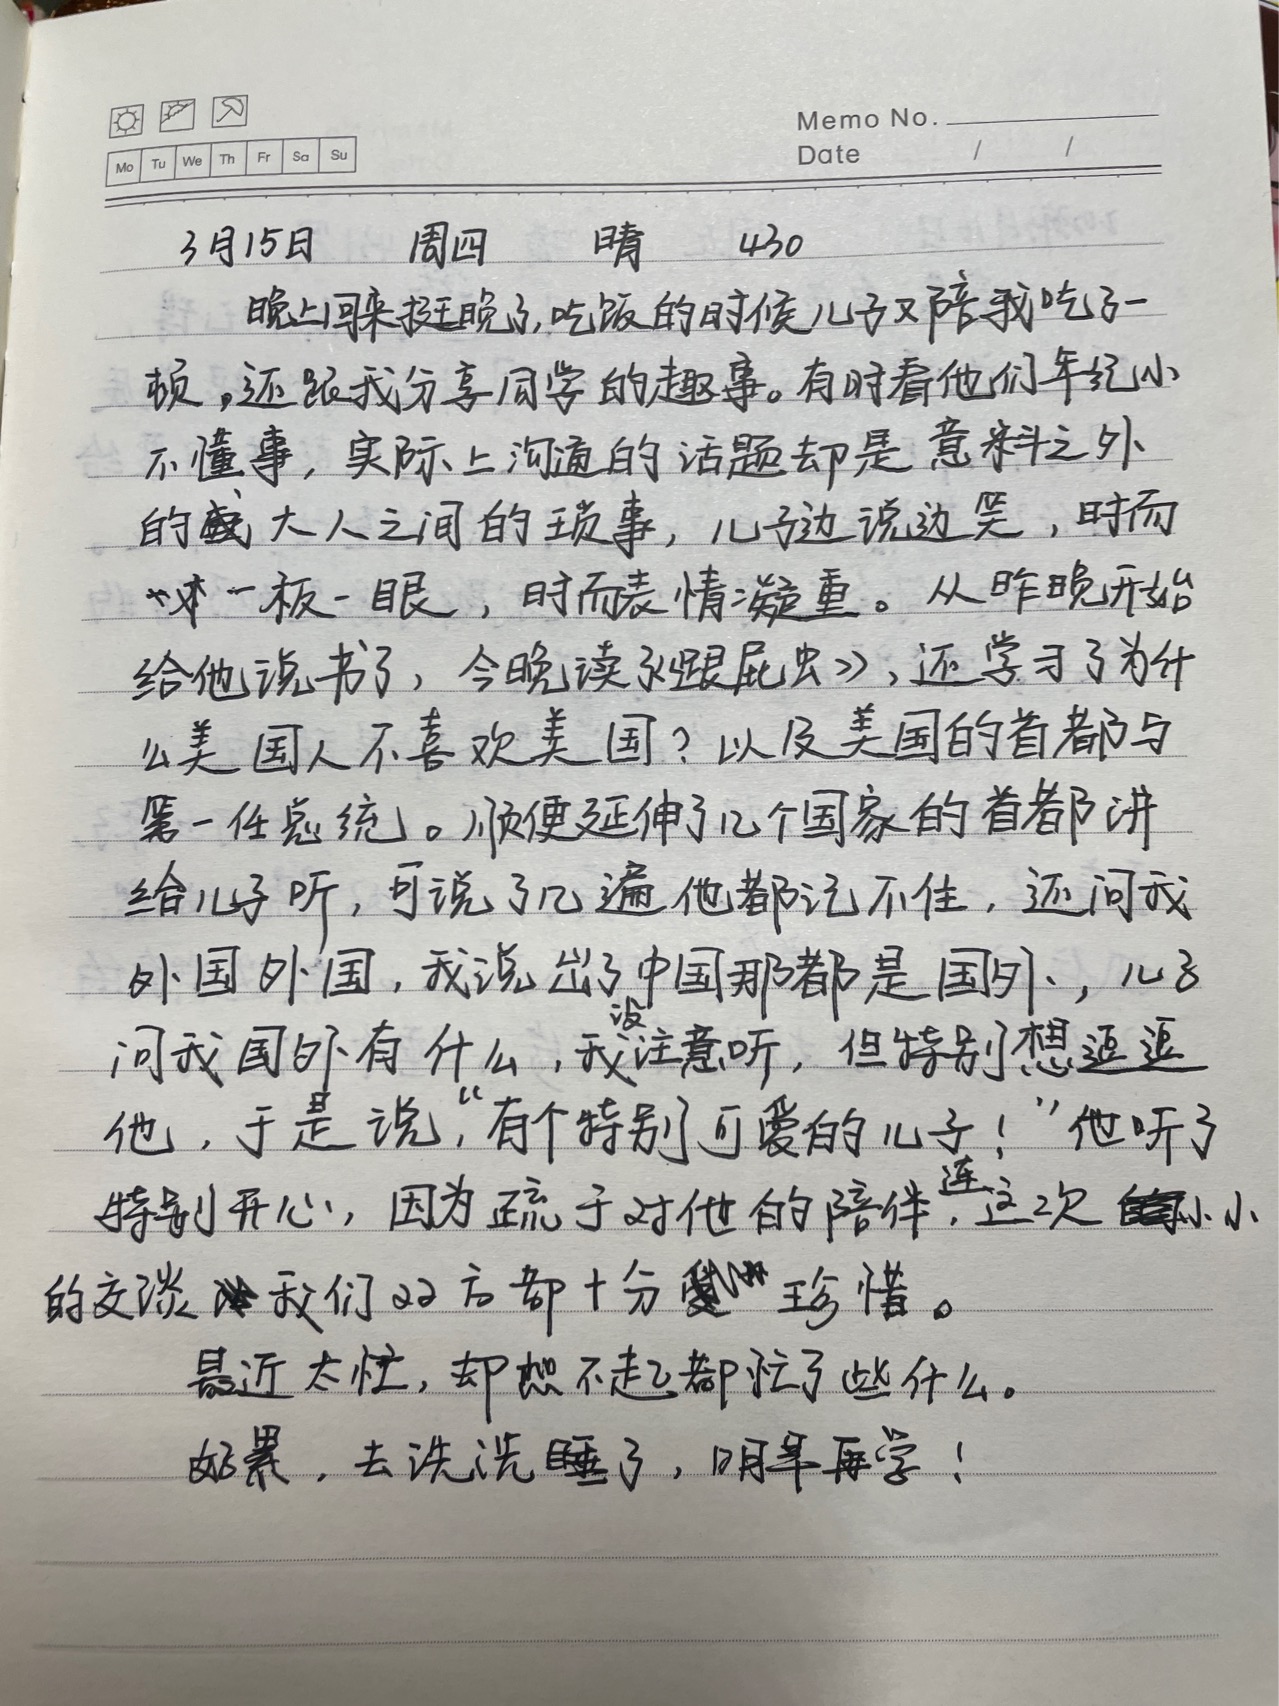 Memo No.
Mo Tu We Th Fr Sa Su
Date / /
3月15日 周四 晴 430
晚上回来挺晚了,吃饭的时候儿子又陪我吃了一
顿,还跟我分享同学的趣事。有时看他们年纪小
不懂事,实际上沟通的话题却是意料之外
的 大人之间的琐事,儿子边说边笑,时而
一板一眼,时而表情凝重。从昨晚开始
给他说书了,今晚读了《跟屁虫》,还学习了为什
么美国人不喜欢美国?以及美国的首都与
第一任总统。顺便延伸了几个国家的首都讲
给儿子听,可说了几遍他都记不住,还问我
外国外国,我说出了中国那都是国外,儿子
问我国外有什么,我没注意听,但特别想逗逗
他,于是说,“有个特别可爱的儿子!”他听了
特别开心,因为疏于对他的陪伴,连这次 小小
的交谈 我们双方都十分 珍惜。
最近太忙,却想不起都忙了些什么。
好累,去洗洗睡了,明早再学!